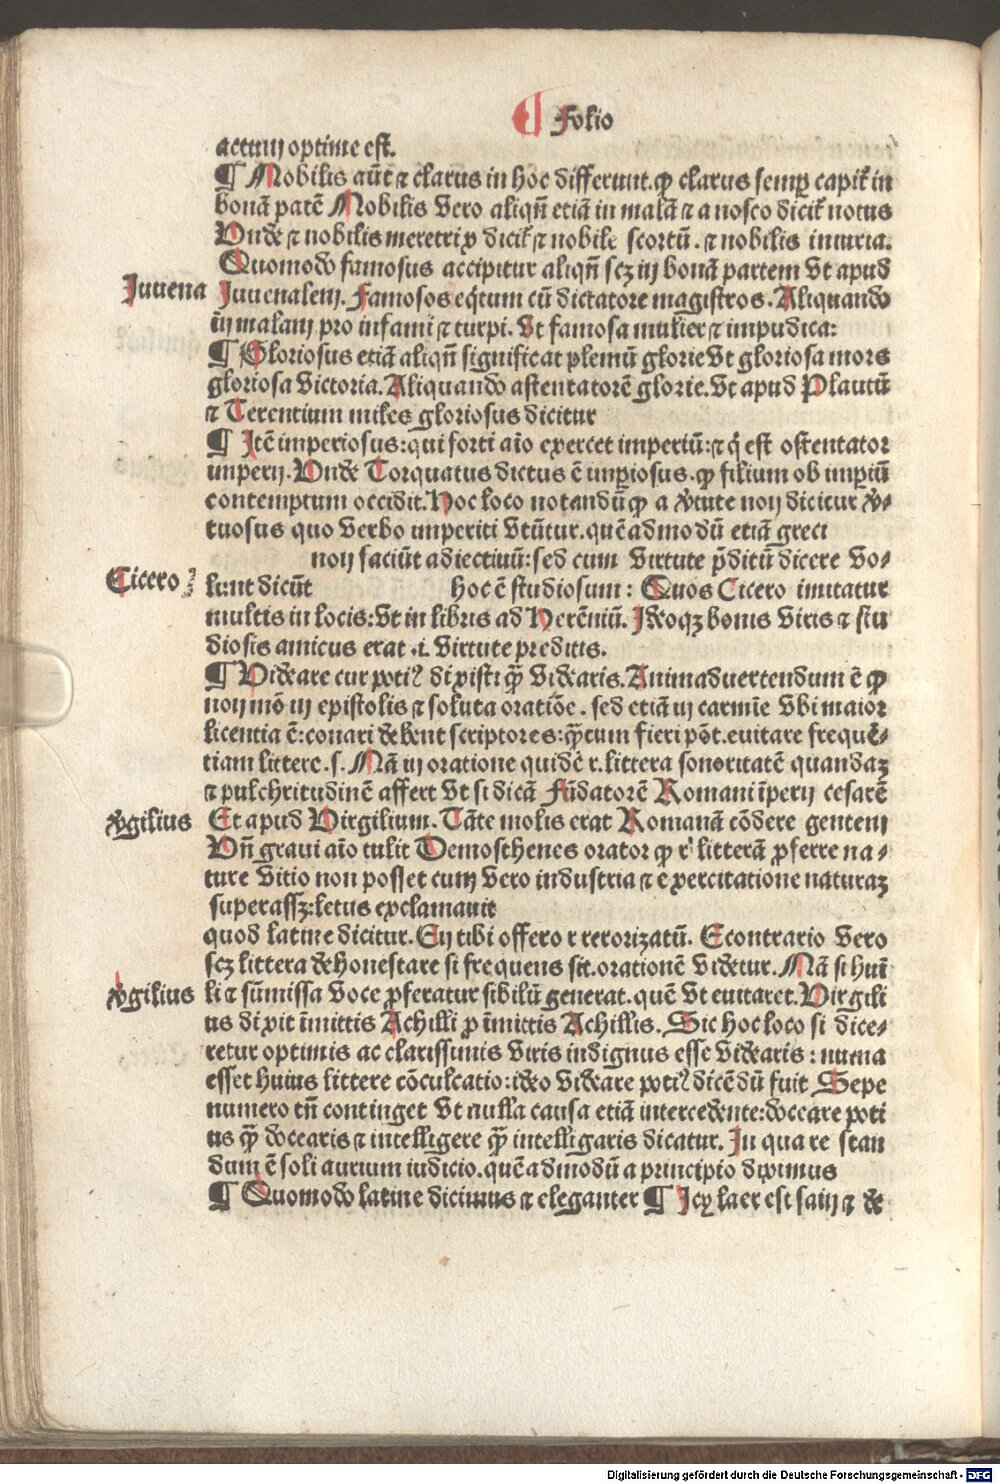 ¶ Folio
actum optime est.
¶ Nobilis aūt ⁊ clarus in hoc differunt. ꝙ clarus semꝑ capit᷑ in
bonā partē Nobilis vero aliqn̄ etiā in malā ⁊ a nosco dicit᷑ notus
Vnde ⁊ nobilis meretrix dicit᷑ ⁊ nobile scortū. ⁊ nobilis iniuria.
Quomodo famosus accipitur aliqn̄ scꝫ in bonā partem vt apud
Juuena
Juuenalem. Famosos eq̄tum cū dictatore magistros. Aliquando
in malam pro infami ⁊ turpi. Vt famosa mulier ⁊ impudica:
¶ Gloriosus etiā aliqn̄ significat plenū glorie Vt gloriosa mors
gloriosa victoria. Aliquando astentatorē glorie. Vt apud Plautū
⁊ Terentium miles gloriosus dicitur
¶ Itē imperiosus: qui forti aīo exercet imperiū: ⁊ q̇ est ostentator
imperij. Vnde Torquatus dictus ē imꝑiosus. ꝙ filium ob imꝑiū
contemptum occidit. Hoc loco notandū ꝙ a v̓tute non dicitur v̓⸗
tuosus quo verbo imperiti vtūtur. quēadmodū etiā greci
non faciūt adiectiuū: sed cum virtute p̄ditū dicere vo⸗
Cicero
lunt dicūt hoc ē studiosum: Quos Cicero imitatur
multis in locis: Vt in libris ad Herēniū. Ideoqꝫ bonis viris ⁊ stu
diosis amicus erat .i. virtute preditis.
¶ Videare cur poti⁹ dixisti qꝫ̄ videaris. Animaduertendum ē ꝙ
non mō in epistolis ⁊ soluta oratiōe. sed etiā in carmīe vbi maior
licentia ē: conari debent scriptores: qꝫ̄cum fieri pōt. euitare frequē⸗
tiam littere .s. Nā in oratione quidē r. littera sonoritatē quandaꝫ
⁊ pulchritudinē affert Vt si dicā Fūdatorē Romani īperij cesarē
v̓gilius
Et apud Virgilium. Tāte molis erat Romanā cōdere gentem
Vn̄ graui aīo tulit Demosthenes orator ꝙ r litterā ꝓferre na⸗
ture vitio non posset cum vero industria ⁊ exercitatione naturaꝫ
superassꝫ: letus exclamauit
quod latine dicitur. En tibi offero r rerorizatū. Econtrario vero
scꝫ littera dehonestare si frequens sit. orationē videtur. Nā si humī
v̓gilius
li ⁊ sūmissa voce ꝓferatur sibilū generat. quē vt euitaret. Virgili
us dixit īmittis Achilli ꝓ īmittis Achillis. Sic hoc loco si dice⸗
retur optimis ac clarissimis viris indignus esse videaris: nimia
esset huius littere cōculcatio: ideo videare poti⁹ dicēdū fuit Sepe
numero tn̄ continget vt nulla causa etiā intercedente: doceare poti
us qꝫ̄ docearis ⁊ intelligere qꝫ̄ intelligaris dicatur. In qua re stan
dum ē soli aurium iudicio. quēadmodū a principio diximus
¶ Quomodo latine dicimus ⁊ eleganter ¶ Icy laer est sain ⁊ de
Digitalisierung gefördert durch die Deutsche Forschungsgemeinschaft - DFG